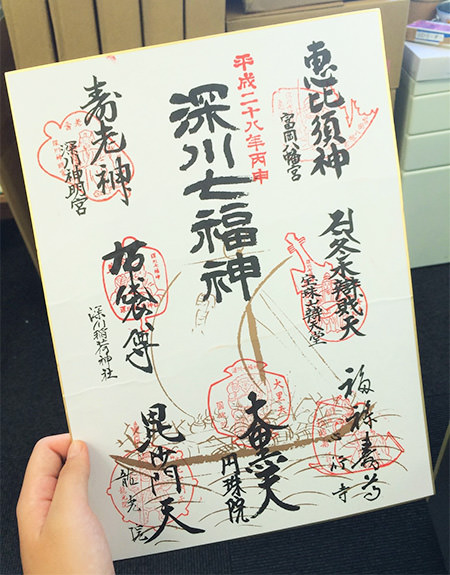 恵比須神
富岡八幡宮
平成二十八年丙申
深川七福神
寿老神
深川神明宮
弁財天
冬木弁天堂
布袋尊
深川稲荷神社
福禄寿
心行寺
大黒天
円珠院
毘沙門天
龍光院